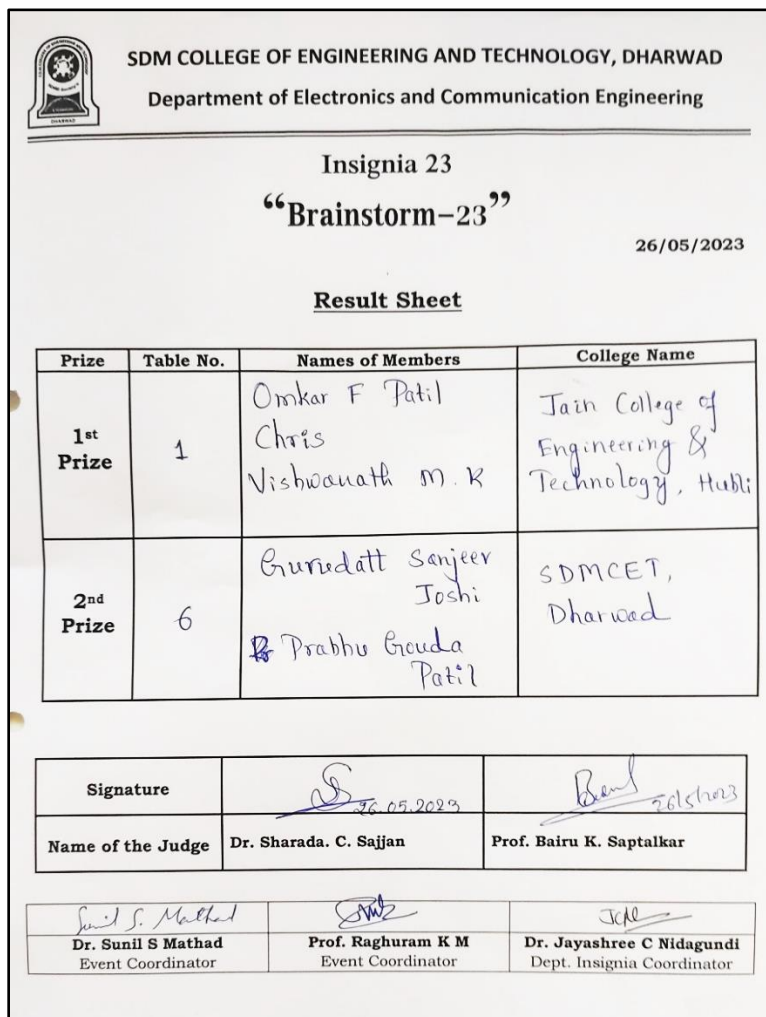 SDM COLLEGE OF ENGINEERING AND TECHNOLOGY, DHARWAD
Department of Electronics and Communication Engineering
DHARWAD
Insignia 23
“Brainstorm-23”
26/05/2023
Result Sheet
Prize Table No. Names of Members College Name
1st Prize
1
Omkar F Patil
Chris
Vishwanath M.K
Jain College of
Engineering &
Technology, Hubli
2nd Prize
6
Gurudatt Sanjeev
Joshi
Prabhu Gouda
Patil
SDMCET,
Dharwad
Signature
26.05.2023
26/5/2023
Name of the Judge Dr. Sharada. C. Sajjan Prof. Bairu K. Saptalkar
Sunil S. Mathad
Dr. Sunil S Mathad Prof. Raghuram K M Dr. Jayashree C Nidagundi
Event Coordinator Event Coordinator Dept. Insignia Coordinator